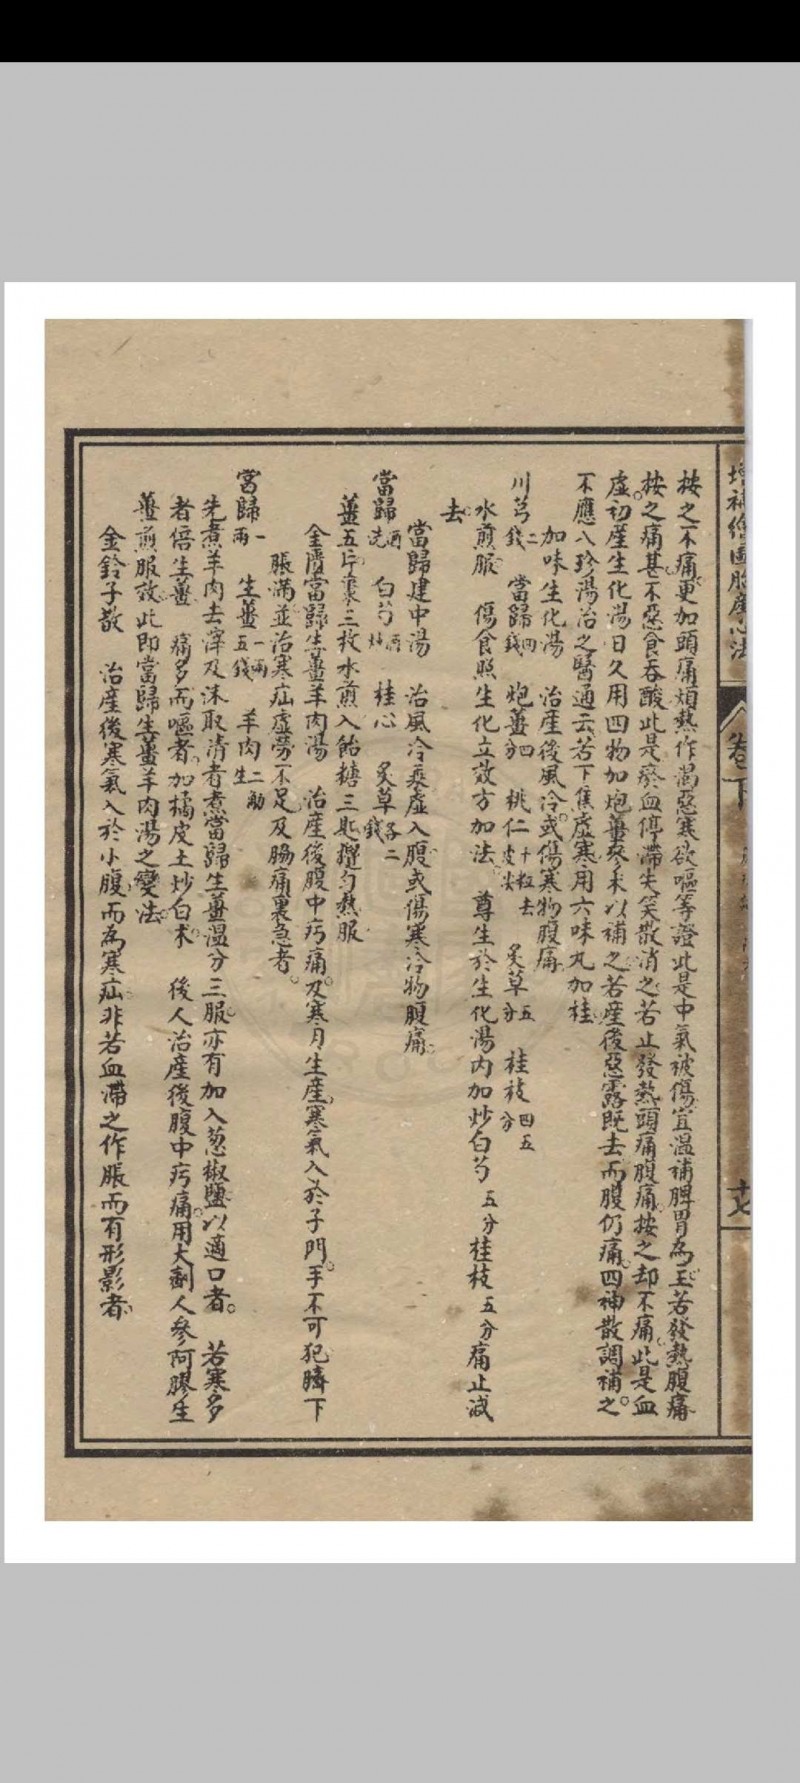 增補繪圖胎產心法
卷下
按之不痛更加頭痛煩熱作渴惡寒欲嘔等證此是中氣被傷宜溫補脾胃為主若發熱腹痛
按之痛甚不惡食吞酸此是瘀血停滯失笑散消之若止發熱頭痛腹痛按之却不痛此是血
虛初產生化湯日久用四物加炮薑參朮以補之若產後惡露既去而腹仍痛四神散調補之
不應八珍湯治之醫通云若下焦虛寒用六味丸加桂
加味生化湯 治產後風冷或傷寒物腹痛
川芎二錢 當歸四錢 炮薑四分 桃仁十粒去皮尖 炙草五分 桂枝四五分
水煎服 傷食照生化立效方加法 尊生於生化湯內加炒白芍五分桂枝五分痛止减
去
當歸建中湯 治風冷乘虛入腹或傷寒冷物腹痛
當歸酒洗 白芍酒炒 桂心 炙草各二錢
薑五片棗三枚水煎入飴糖三匙攪勻熱服
金匱當歸生薑羊肉湯 治產後腹中㽲痛及寒月生產寒氣入於子門手不可犯臍下
脹滿並治寒疝虛勞不足及腸痛裏急者
當歸一兩 生薑一兩五錢 羊肉生二觔
先煮羊肉去滓及沫取清者煮當歸生薑溫分三服亦有加入葱椒鹽以適口者 若寒多
者倍生薑 痛多而嘔者加橘皮土炒白术 後人治產後腹中㽲痛用大劑人參阿膠生
薑煎服效此即當歸生薑羊肉湯之變法
金鈴子散 治產後寒氣入於小腹而為寒疝非若血滯之作脹而有形影者